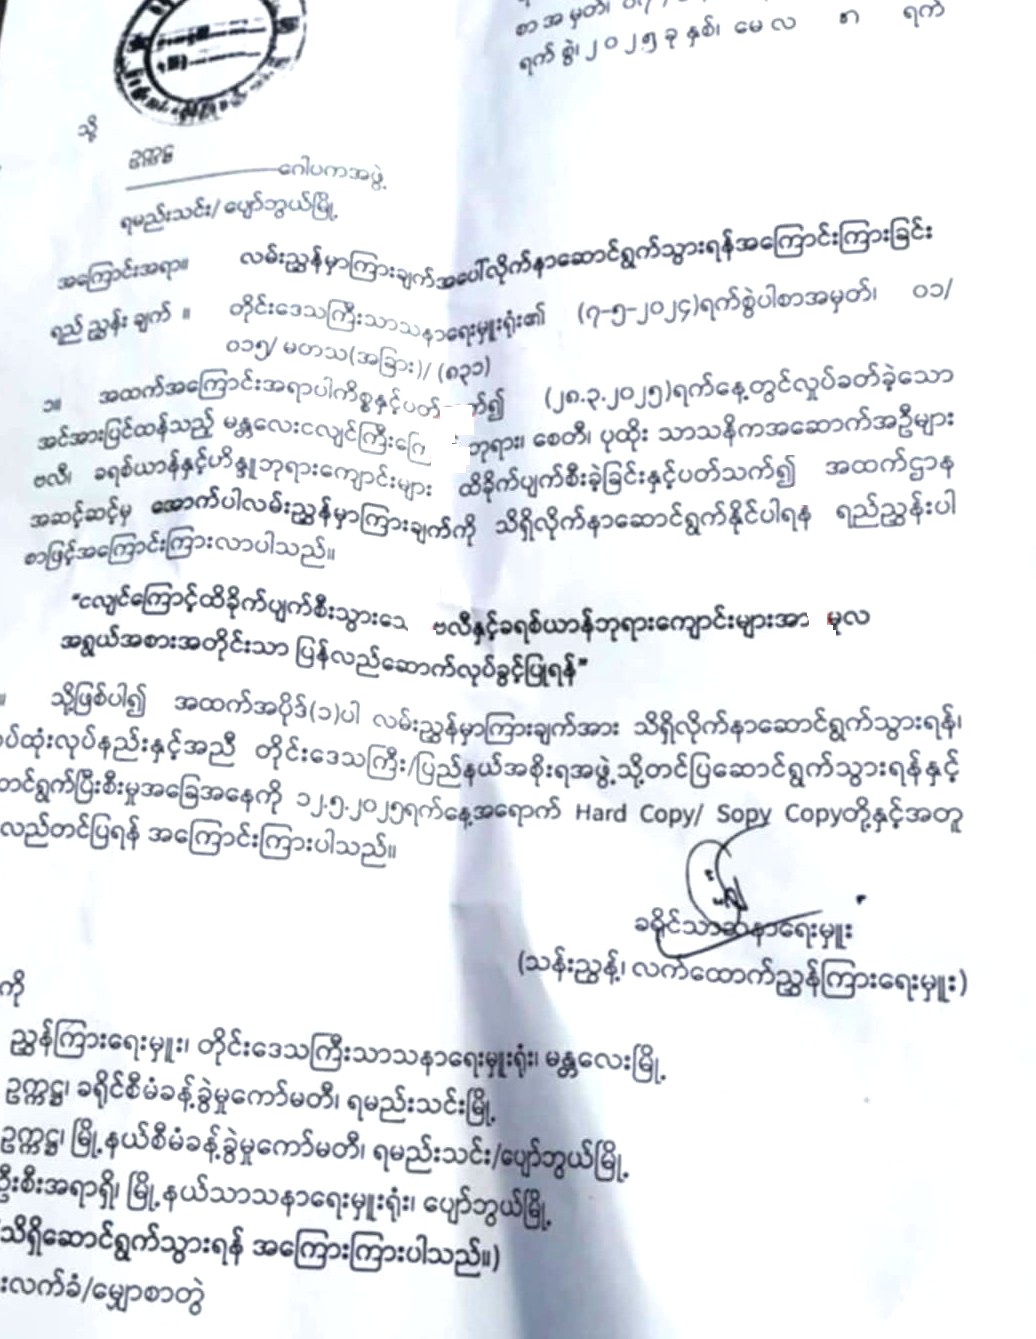 ရက်စွဲ၊ ၂၀၂၅ ခုနှစ်၊ မေ လ ရက်
သို့
ဥက္ကဋ္ဌ
ဂေါပကအဖွဲ့
ရမည်းသင်း/ ပျော်ဘွယ်မြို့
အကြောင်းအရာ။ လမ်းညွှန်မှာကြားချက်အပေါ်လိုက်နာဆောင်ရွက်သွားရန်အကြောင်းကြားခြင်း
ရည် ညွှန်း ချက် ။ တိုင်းဒေသကြီးသာသနာရေးမှူးရုံး၏ (၇-၅-၂၀၂၄)ရက်စွဲပါစာအမှတ်၊ ၀၁/
၀၁၅/ မတသ(အခြား)/ (၈၃၁)
၁။ အထက်အကြောင်းအရာပါကိစ္စနှင့်ပတ် က်၍ (၂၈.၃.၂၀၂၅)ရက်နေ့တွင်လှုပ်ခတ်ခဲ့သော
အင်အားပြင်ထန်သည့် မန္တလေးငလျင်ကြီးကြေ ဘုရား၊ စေတီ၊ ပုထိုး သာသနိကအဆောက်အဦများ
ဗလီ၊ ခရစ်ယာန်နှင့်ဟိန္ဒူဘုရားကျောင်းများ ထိခိုက်ပျက်စီးခဲ့ခြင်းနှင့်ပတ်သက်၍ အထက်ဌာန
အဆင့်ဆင့်မှ အောက်ပါလမ်းညွှန်မှာကြားချက်ကို သိရှိလိုက်နာဆောင်ရွက်နိုင်ပါရန ရည်ညွှန်းပါ
စာဖြင့်အကြောင်းကြားလာပါသည်။
"ငလျင်ကြောင့်ထိခိုက်ပျက်စီးသွားသေ ဗလီနှင့်ခရစ်ယာန်ဘုရားကျောင်းများအာ မူလ
အရွယ်အစားအတိုင်းသာ ပြန်လည်ဆောက်လုပ်ခွင့်ပြုရန်"
။ သို့ဖြစ်ပါ၍ အထက်အပိုဒ်(၁)ပါ လမ်းညွှန်မှာကြားချက်အား သိရှိလိုက်နာဆောင်ရွက်သွားရန်၊
ပ်ထုံးလုပ်နည်းနှင့်အညီ တိုင်းဒေသကြီး/ပြည်နယ်အစိုးရအဖွဲ့သို့တင်ပြဆောင်ရွက်သွားရန်နှင့်
တင်ရွက်ပြီးစီးမှုအခြေအနေကို ၁၂.၅.၂၀၂၅ရက်နေ့အရောက် Hard Copy/ Sopy Copyတို့နှင့်အတူ
လည်တင်ပြရန် အကြောင်းကြားပါသည်။
ခရိုင်သာသနာရေးမှူး
(သန်းညွန့်၊ လက်ထောက်ညွှန်ကြားရေးမှူး)
ကို
ညွှန်ကြားရေးမှူး၊ တိုင်းဒေသကြီးသာသနာရေးမှူးရုံး၊ မန္တလေးမြို့
ဥက္ကဋ္ဌ၊ ခရိုင်စီမံခန့်ခွဲမှုကော်မတီ၊ ရမည်းသင်းမြို့
ဥက္ကဋ္ဌ၊ မြို့နယ်စီမံခန့်ခွဲမှုကော်မတီ၊ ရမည်းသင်း/ပျော်ဘွယ်မြို့
ဦးစီးအရာရှိ၊ မြို့နယ်သာသနာရေးမှူးရုံး၊ ပျော်ဘွယ်မြို့
သိရှိဆောင်ရွက်သွားရန် အကြောကြားပါသည်။)
းလက်ခံ/မျှောစာတွဲ